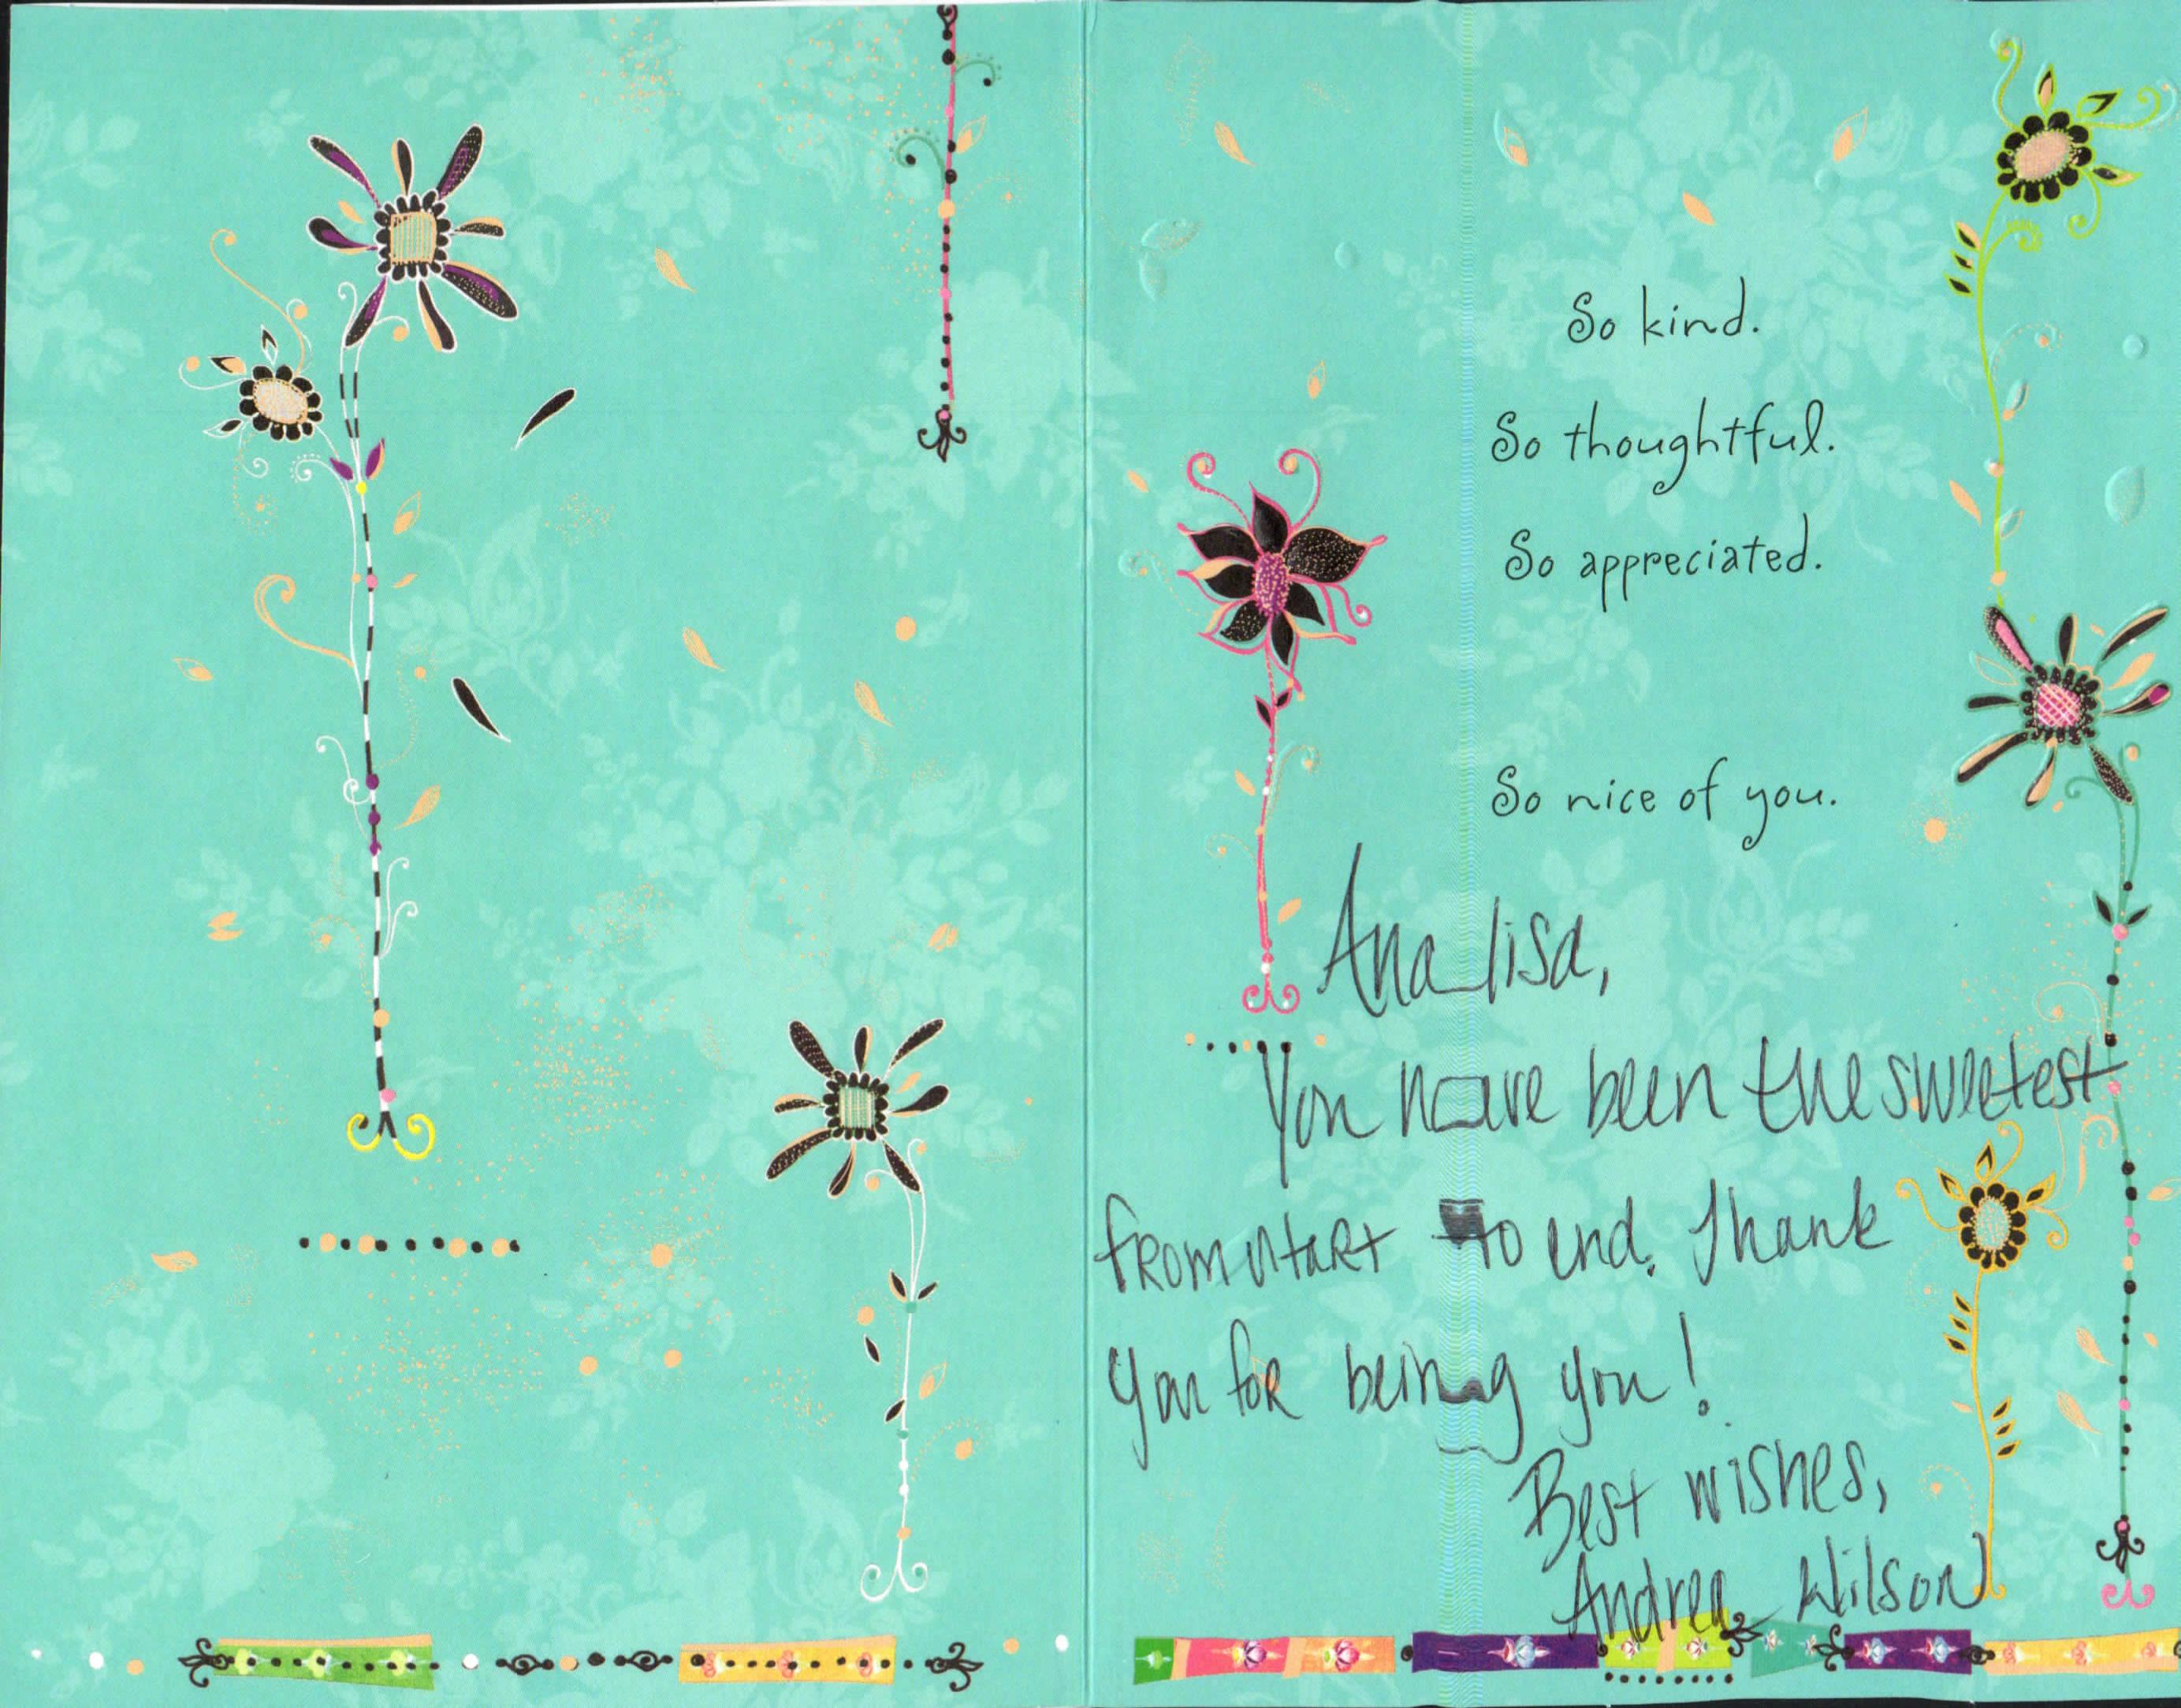 So kind.
So thoughtful.
So appreciated.
So nice of you.
Analisa,
You have been the sweetest
from start to end. Thank
you for being you!
Best wishes,
Andrea Wilson